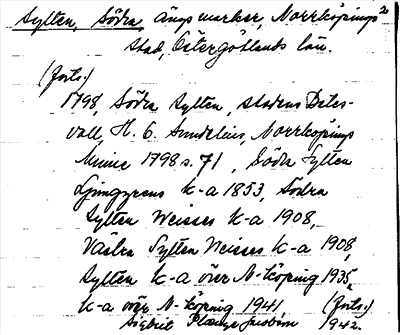 Sylten, Södra, ängsmarker, Norrköpings 2
stad, Östergötlands län.
(forts.)
1798, Södra Sylten, stadens Betes-
vall, H. O. Sundelius, Norrköpings
Minne 1798 s. 71, Södra Sylten
Ljunggrens k-a 1853, Södra
Sylten Weisses k-a 1908,
Västra Sylten Neisses k-a 1908,
Sylten k-a över N-köping 1935,
k-a över N-köping 1941, (forts.)
1942.